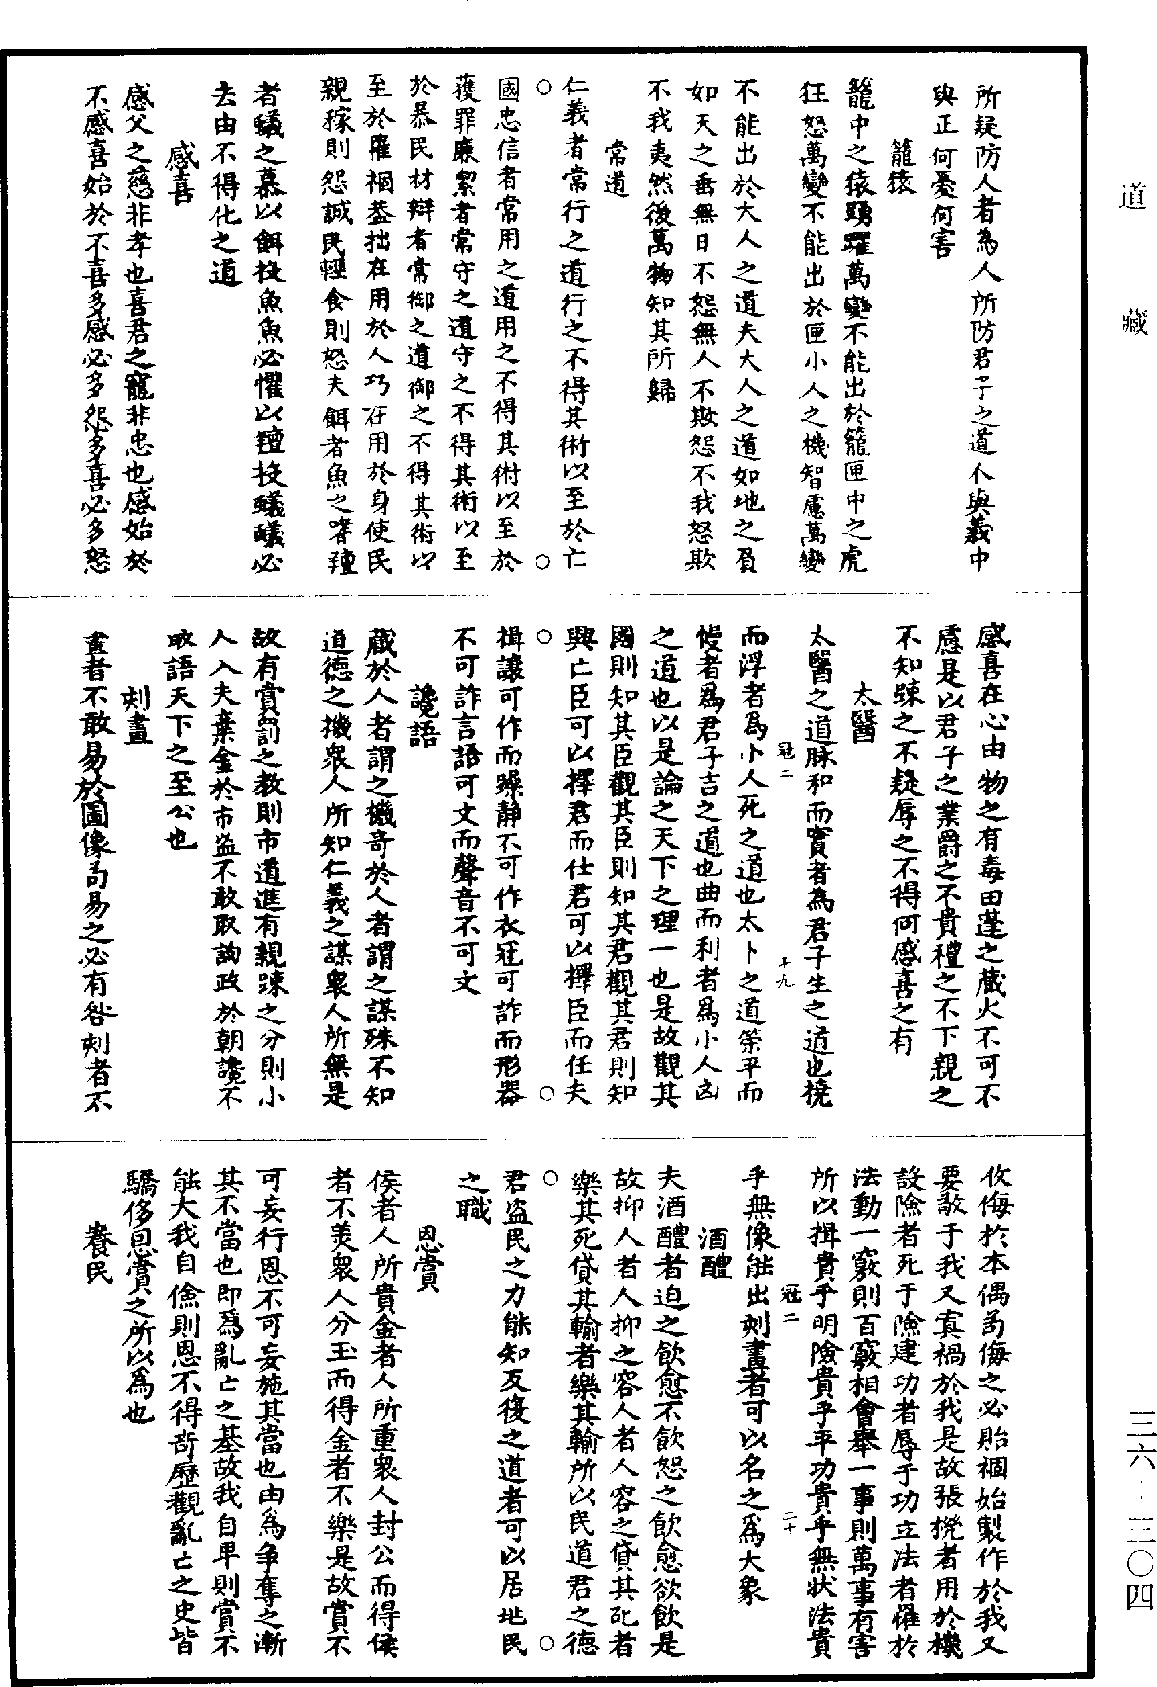 道藏
所疑防人者為人所防君子之道仁與義中
與正何憂何害
籠猿
籠中之猿踴躍萬變不能出於籠匣中之虎
狂怒萬變不能出於匣小人之機智慮萬變
不能出於大人之道夫大人之道如地之負
如天之垂無日不怨無人不欺怨不我怒欺
不我夷然後萬物知其所歸
常道
仁義者常行之道行之不得其術以至於亡
國忠信者常用之道用之不得其術以至於
獲罪廉潔者常守之道守之不得其術以至
於暴民材辯者常御之道御之不得其術以
至於罹禍蓋拙在用於人巧在用於身使民
親稼則怨誡民輕食則怒夫餌者魚之嗜羶
者蟻之慕以餌投魚魚必懼以羶投蟻蟻必
去由不得化之道
感喜
感父之慈非孝也喜君之寵非忠也感始於
不感喜始於不喜多感必多怨多喜必多怒
感喜在心由物之有毒由蓬之藏火不可不
慮是以君子之業爵之不貴禮之不下親之
不知踈之不疑辱之不得何感喜之有
太醫
太醫之道脉和而實者為君子生之道也撓
而浮者為小人死之道也太卜之道策平而
冠二 十九
慢者為君子吉之道也曲而利者為小人凶
之道也以是論之天下之理一也是故觀其
國則知其臣觀其臣則知其君觀其君則知
興亡臣可以擇君而仕君可以擇臣而任夫
揖讓可作而躁靜不可作衣冠可詐而形器
不可詐言語可文而聲音不可文
讒語
藏於人者謂之機奇於人者謂之謀殊不知
道德之機衆人所知仁義之謀衆人所無是
故有賞罰之教則市道進有親踈之分則小
人入夫棄金於市盜不敢取詢政於朝讒不
敢語天下之至公也
刻畫
畫者不敢易於圖像苟易之必有咎刻者不
敢侮於本偶苟侮之必貽禍始製作於我又
要敬于我又寘禍於我是故張機者用於機
設險者死于險建功者辱于功立法者罹於
法動一竅則百竅相會舉一事則萬事有害
所以揖貴乎明險貴乎平功貴乎無狀法貴
冠二 二十
乎無像能出刻畫者可以名之為大象
酒醴
夫酒醴者迫之飲愈不飲恕之飲愈欲飲是
故抑人者人抑之容人者人容之貸其死者
樂其死貸其輸者樂其輸所以民道君之德
君盜民之力能知反復之道者可以居地民
之職
恩賞
侯者人所貴金者人所重衆人封公而得侯
者不美衆人分玉而得金者不樂是故賞不
可妄行恩不可妄施其當也由為爭奪之漸
其不當也即為亂亡之基故我自卑則賞不
能大我自儉則恩不得奇歷觀亂亡之史皆
驕侈恩賞之所以為也
養民
三六·三〇四